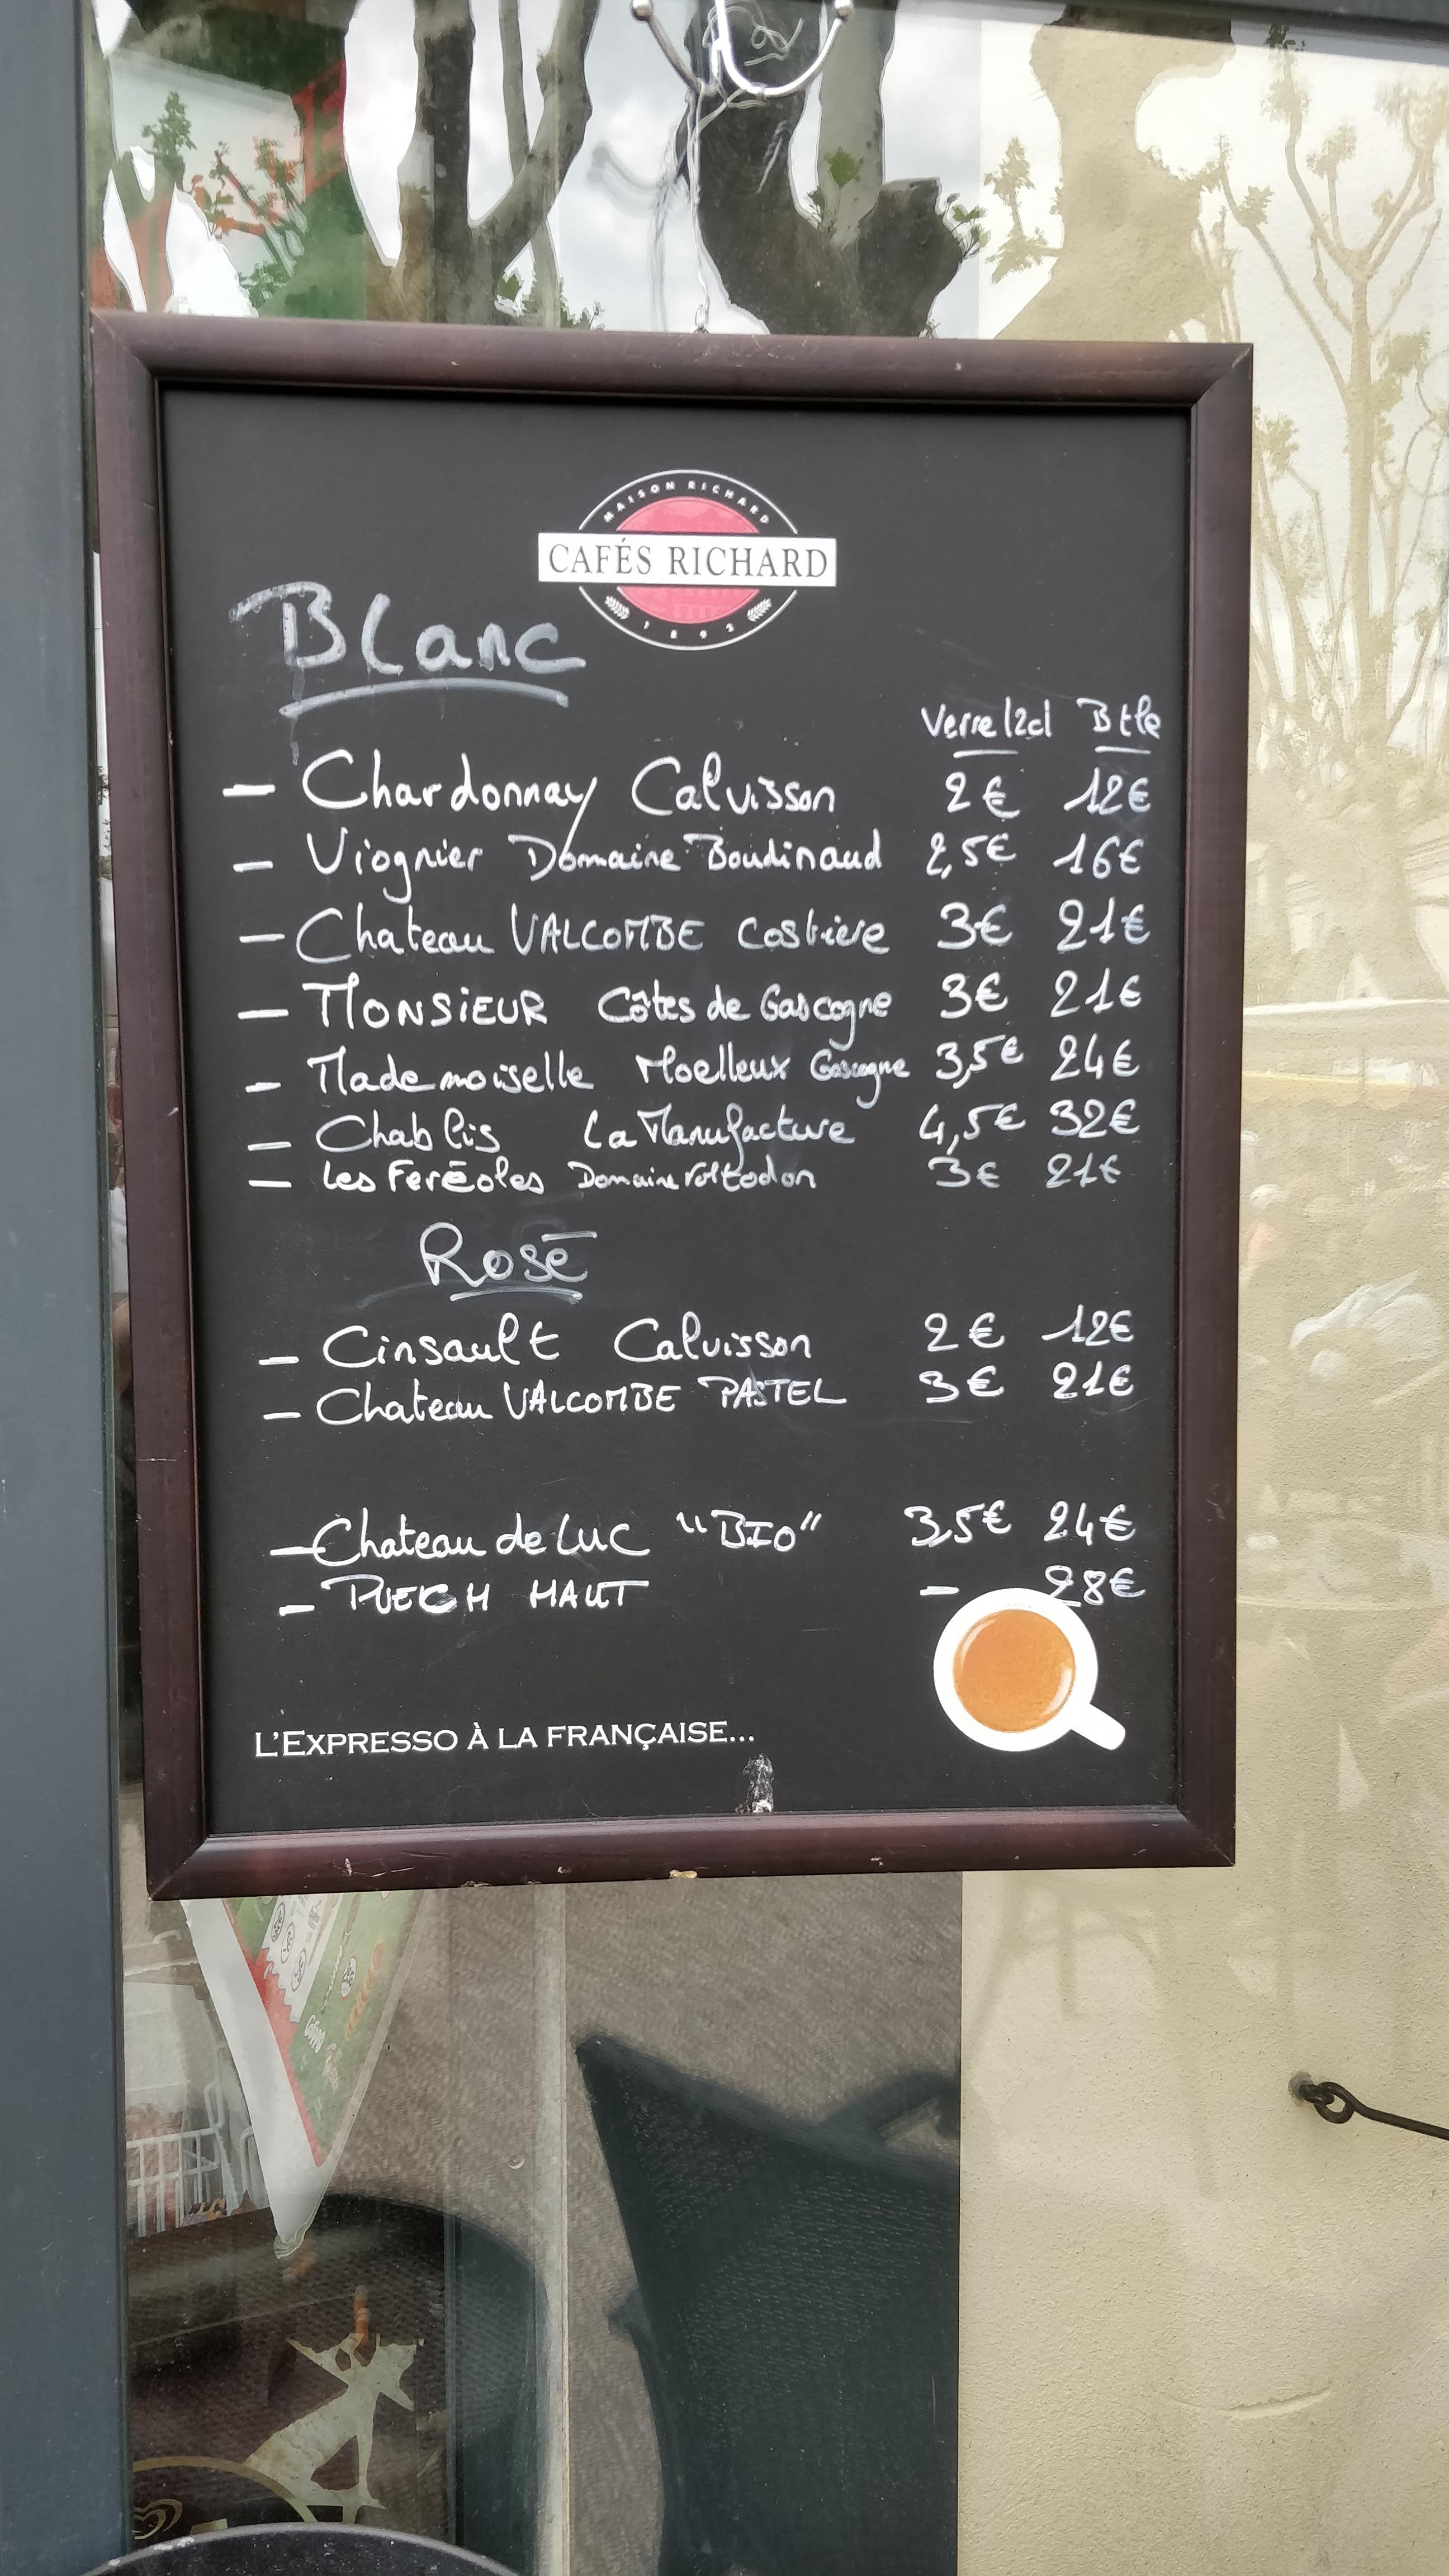 MAISON RICHARD
CAFÉS RICHARD
1892
Blanc
Verre 12cl Btle
– Chardonnay Calvisson 2€ 12€
– Viognier Domaine Boudinaud 2,5€ 16€
– Chateau VALCOMBE Costiere 3€ 21€
– MONSiEUR Côtes de Gascogne 3€ 21€
– Mademoiselle Moelleux Gascogne 3,5€ 24€
– Chablis La Manufacture 4,5€ 32€
– Les Feréoles Domaine 3€ 21€
Rosé
– Cinsault Calvisson 2€ 12€
– Chateau VALCOMBE PASTEL 3€ 21€
– Chateau de LUC "BIO" 3,5€ 24€
– PUECH HAUT – 28€
L'EXPRESSO À LA FRANÇAISE...